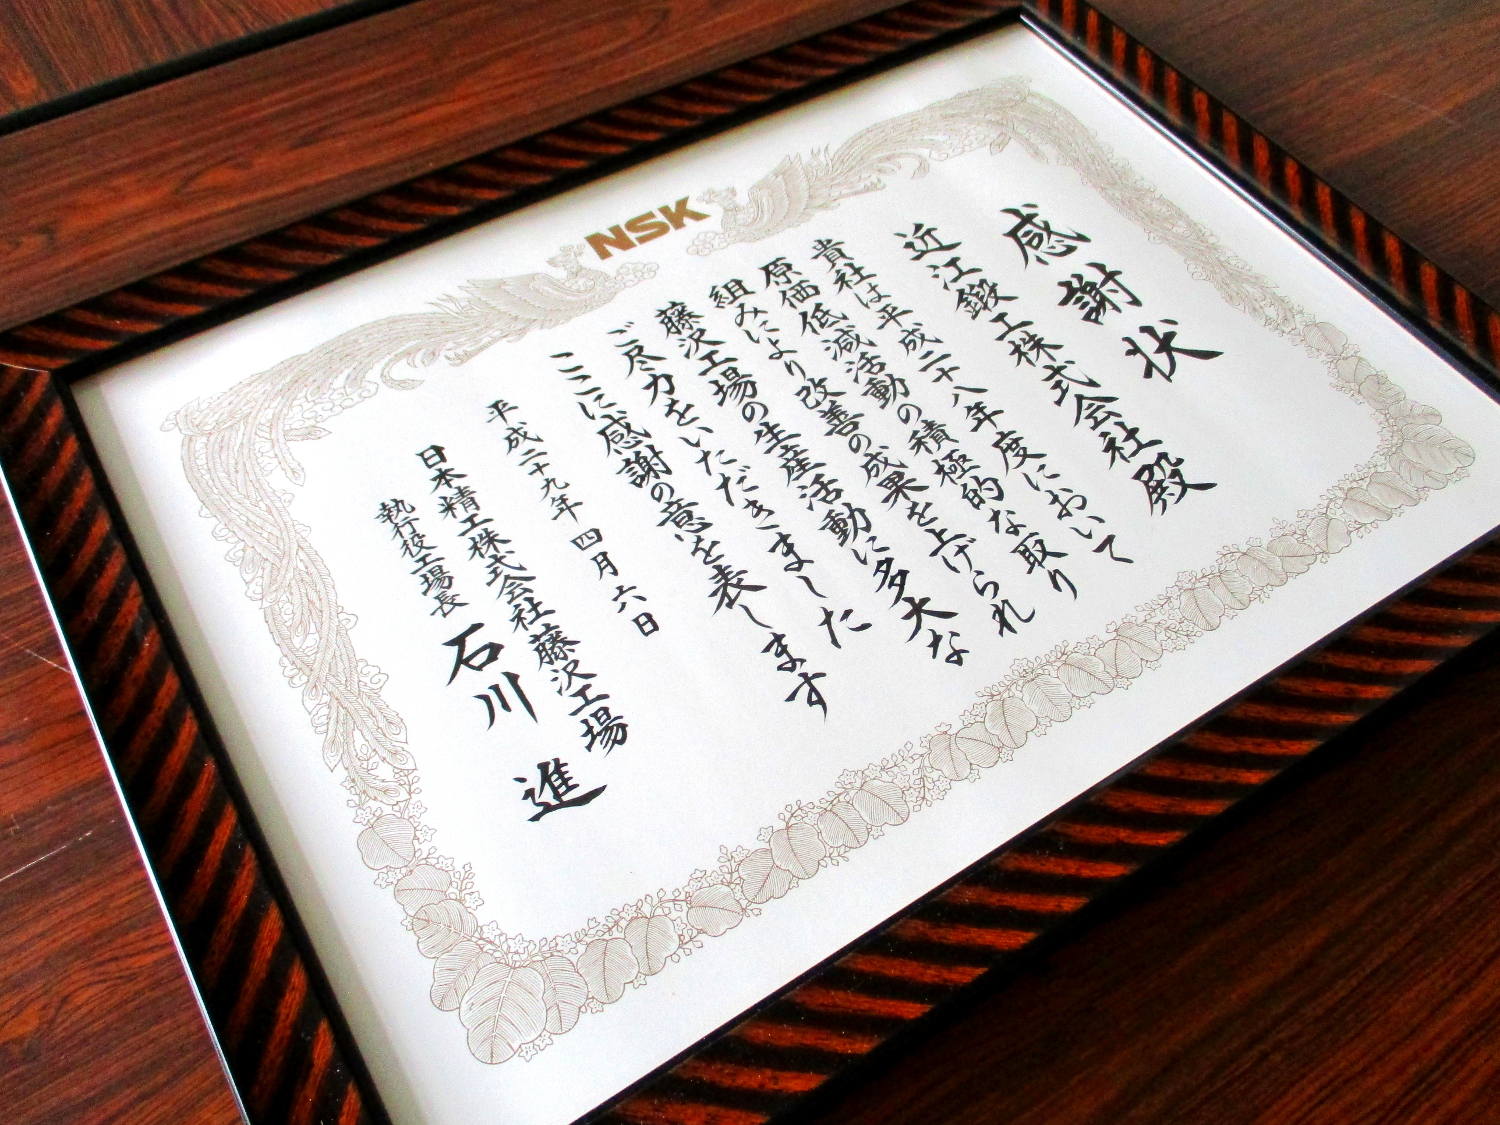 NSK
感謝状
近江鍛工株式会社殿
貴社は平成二十八年度において
原価低減活動の積極的な取り
組みにより改善の成果を上げられ
藤沢工場の生産活動に多大な
ご尽力をいただきました
ここに感謝の意を表します
平成二十九年四月六日
日本精工株式会社藤沢工場
執行役工場長 石川 進